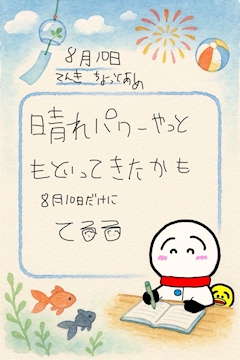 8月10日
てんき ちょっとあめ
晴れパワーやっと
もどってきたかも
8月10日だけに
てるる